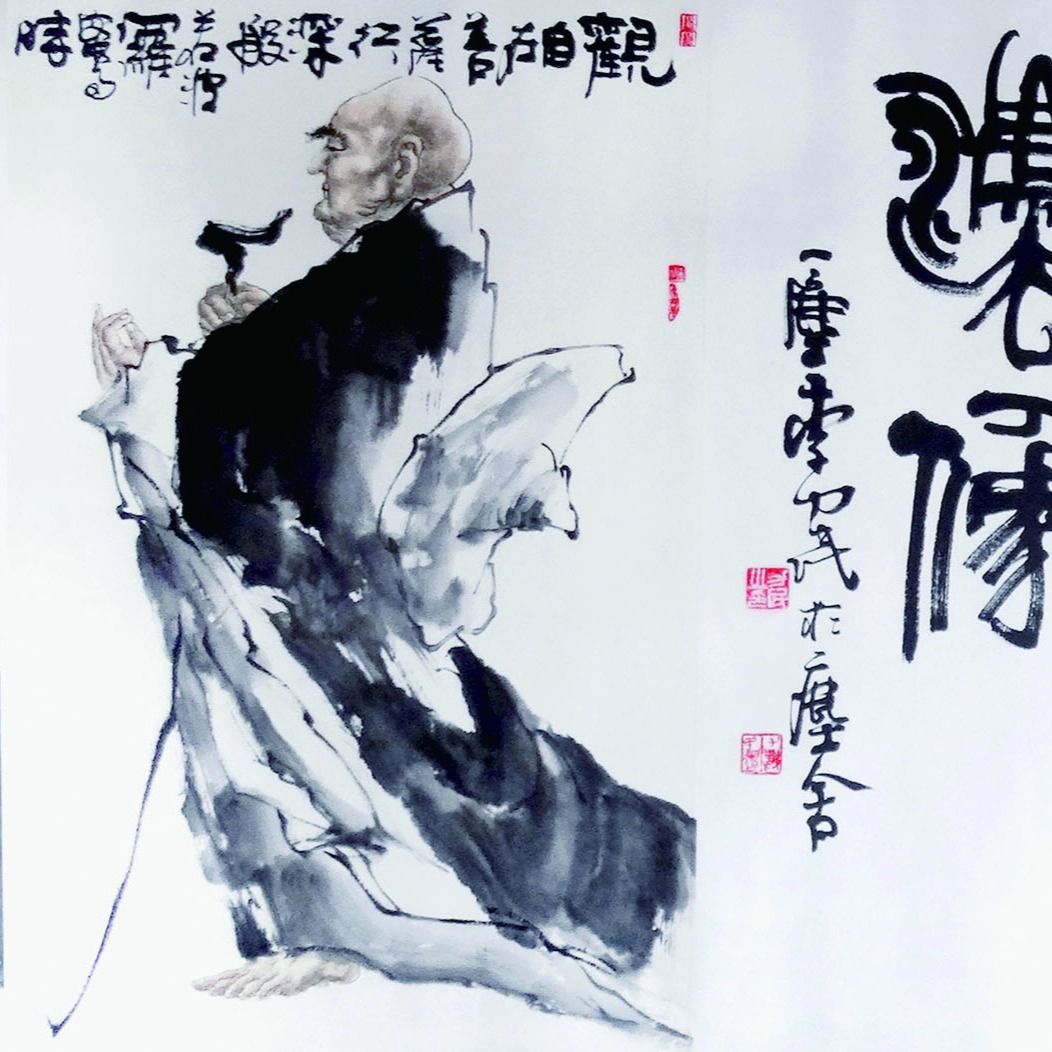 像
一塵李力民於一塵舍
觀自在菩薩行深般若波羅蜜多時